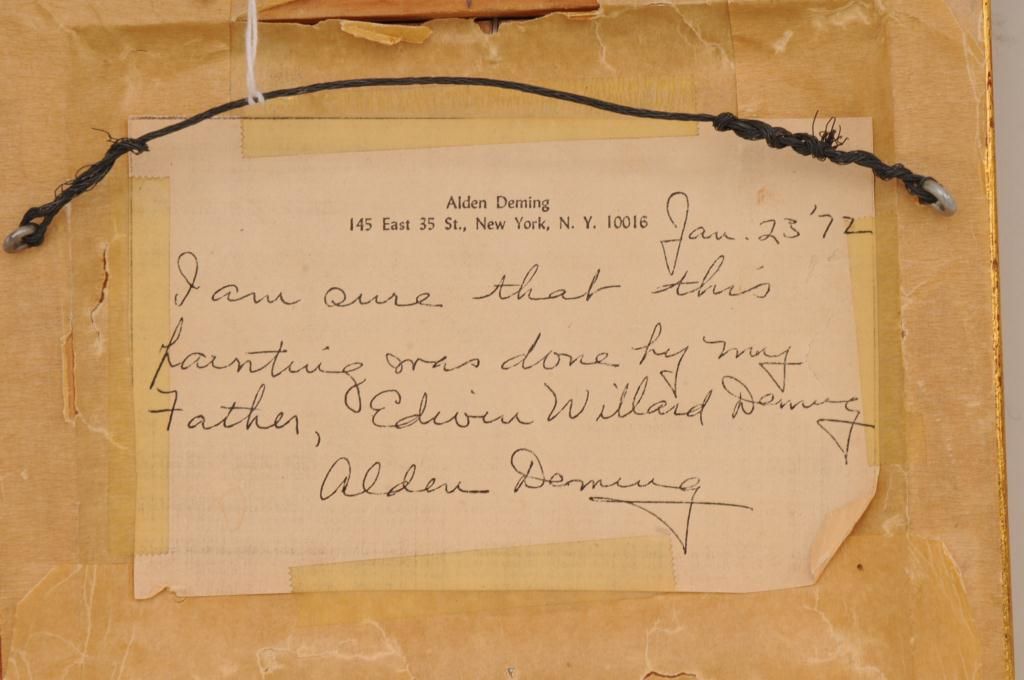 Alden Deming
145 East 35 St., New York, N. Y. 10016
Jan. 23 '72
I am sure that this
painting was done by my
Father, Edwin Willard Deming
Alden Deming